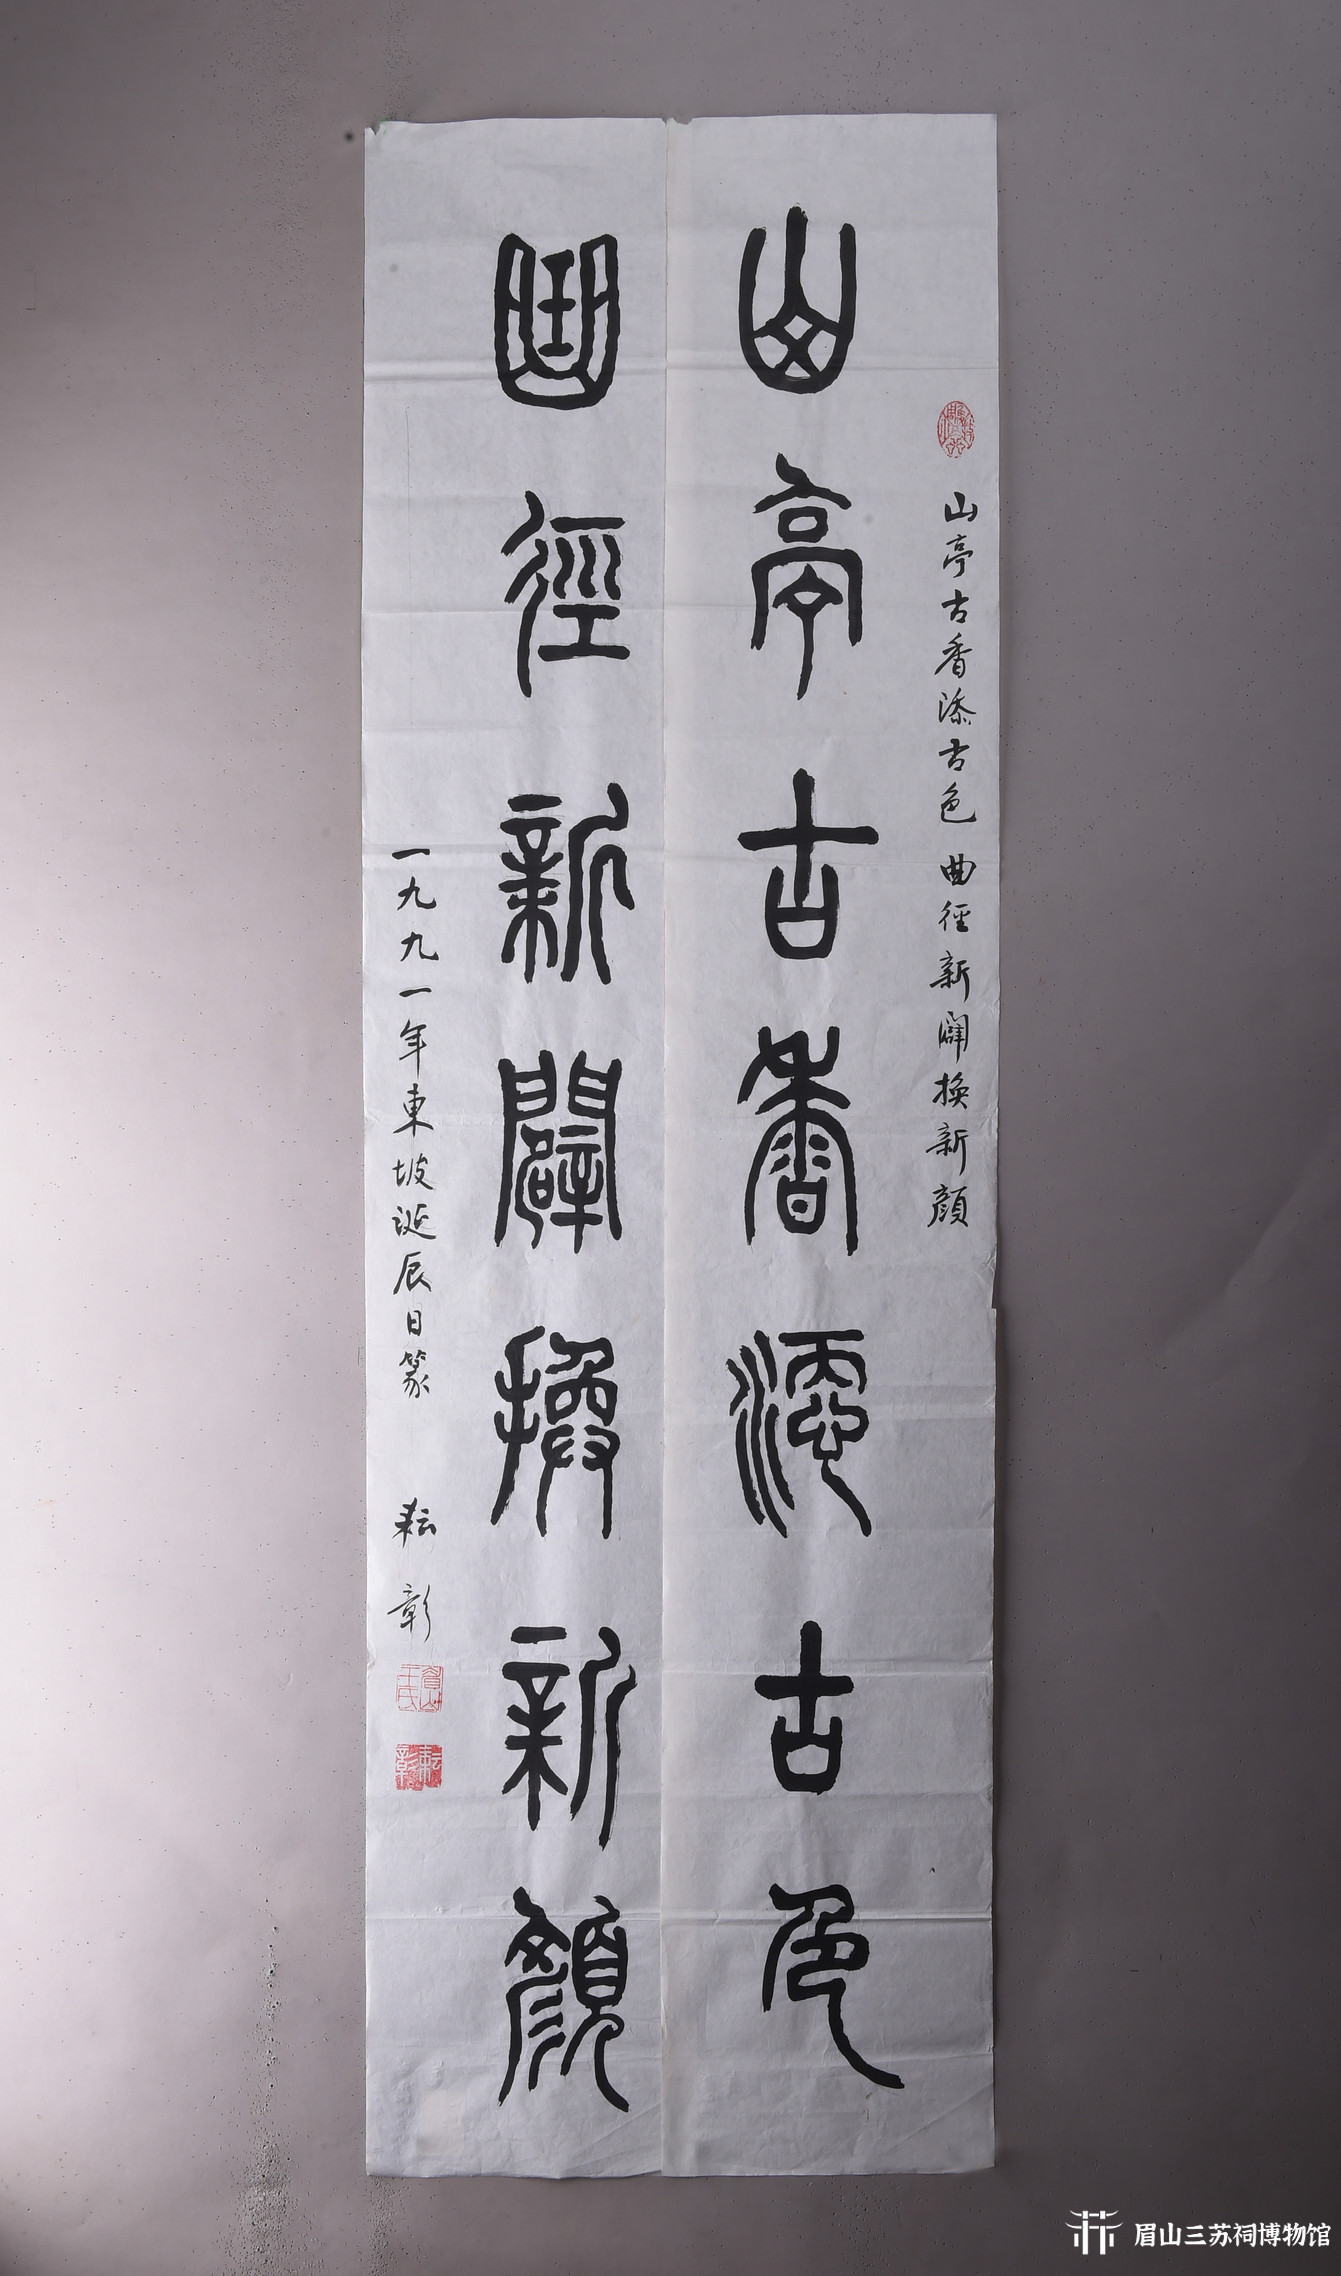 山亭古香添古色 曲徑新闢換新顏
山亭古香添古色
曲徑新闢換新顏
一九九一年東坡誕辰日篆 耘彰
眉山王氏
耘彰
眉山三苏祠博物馆